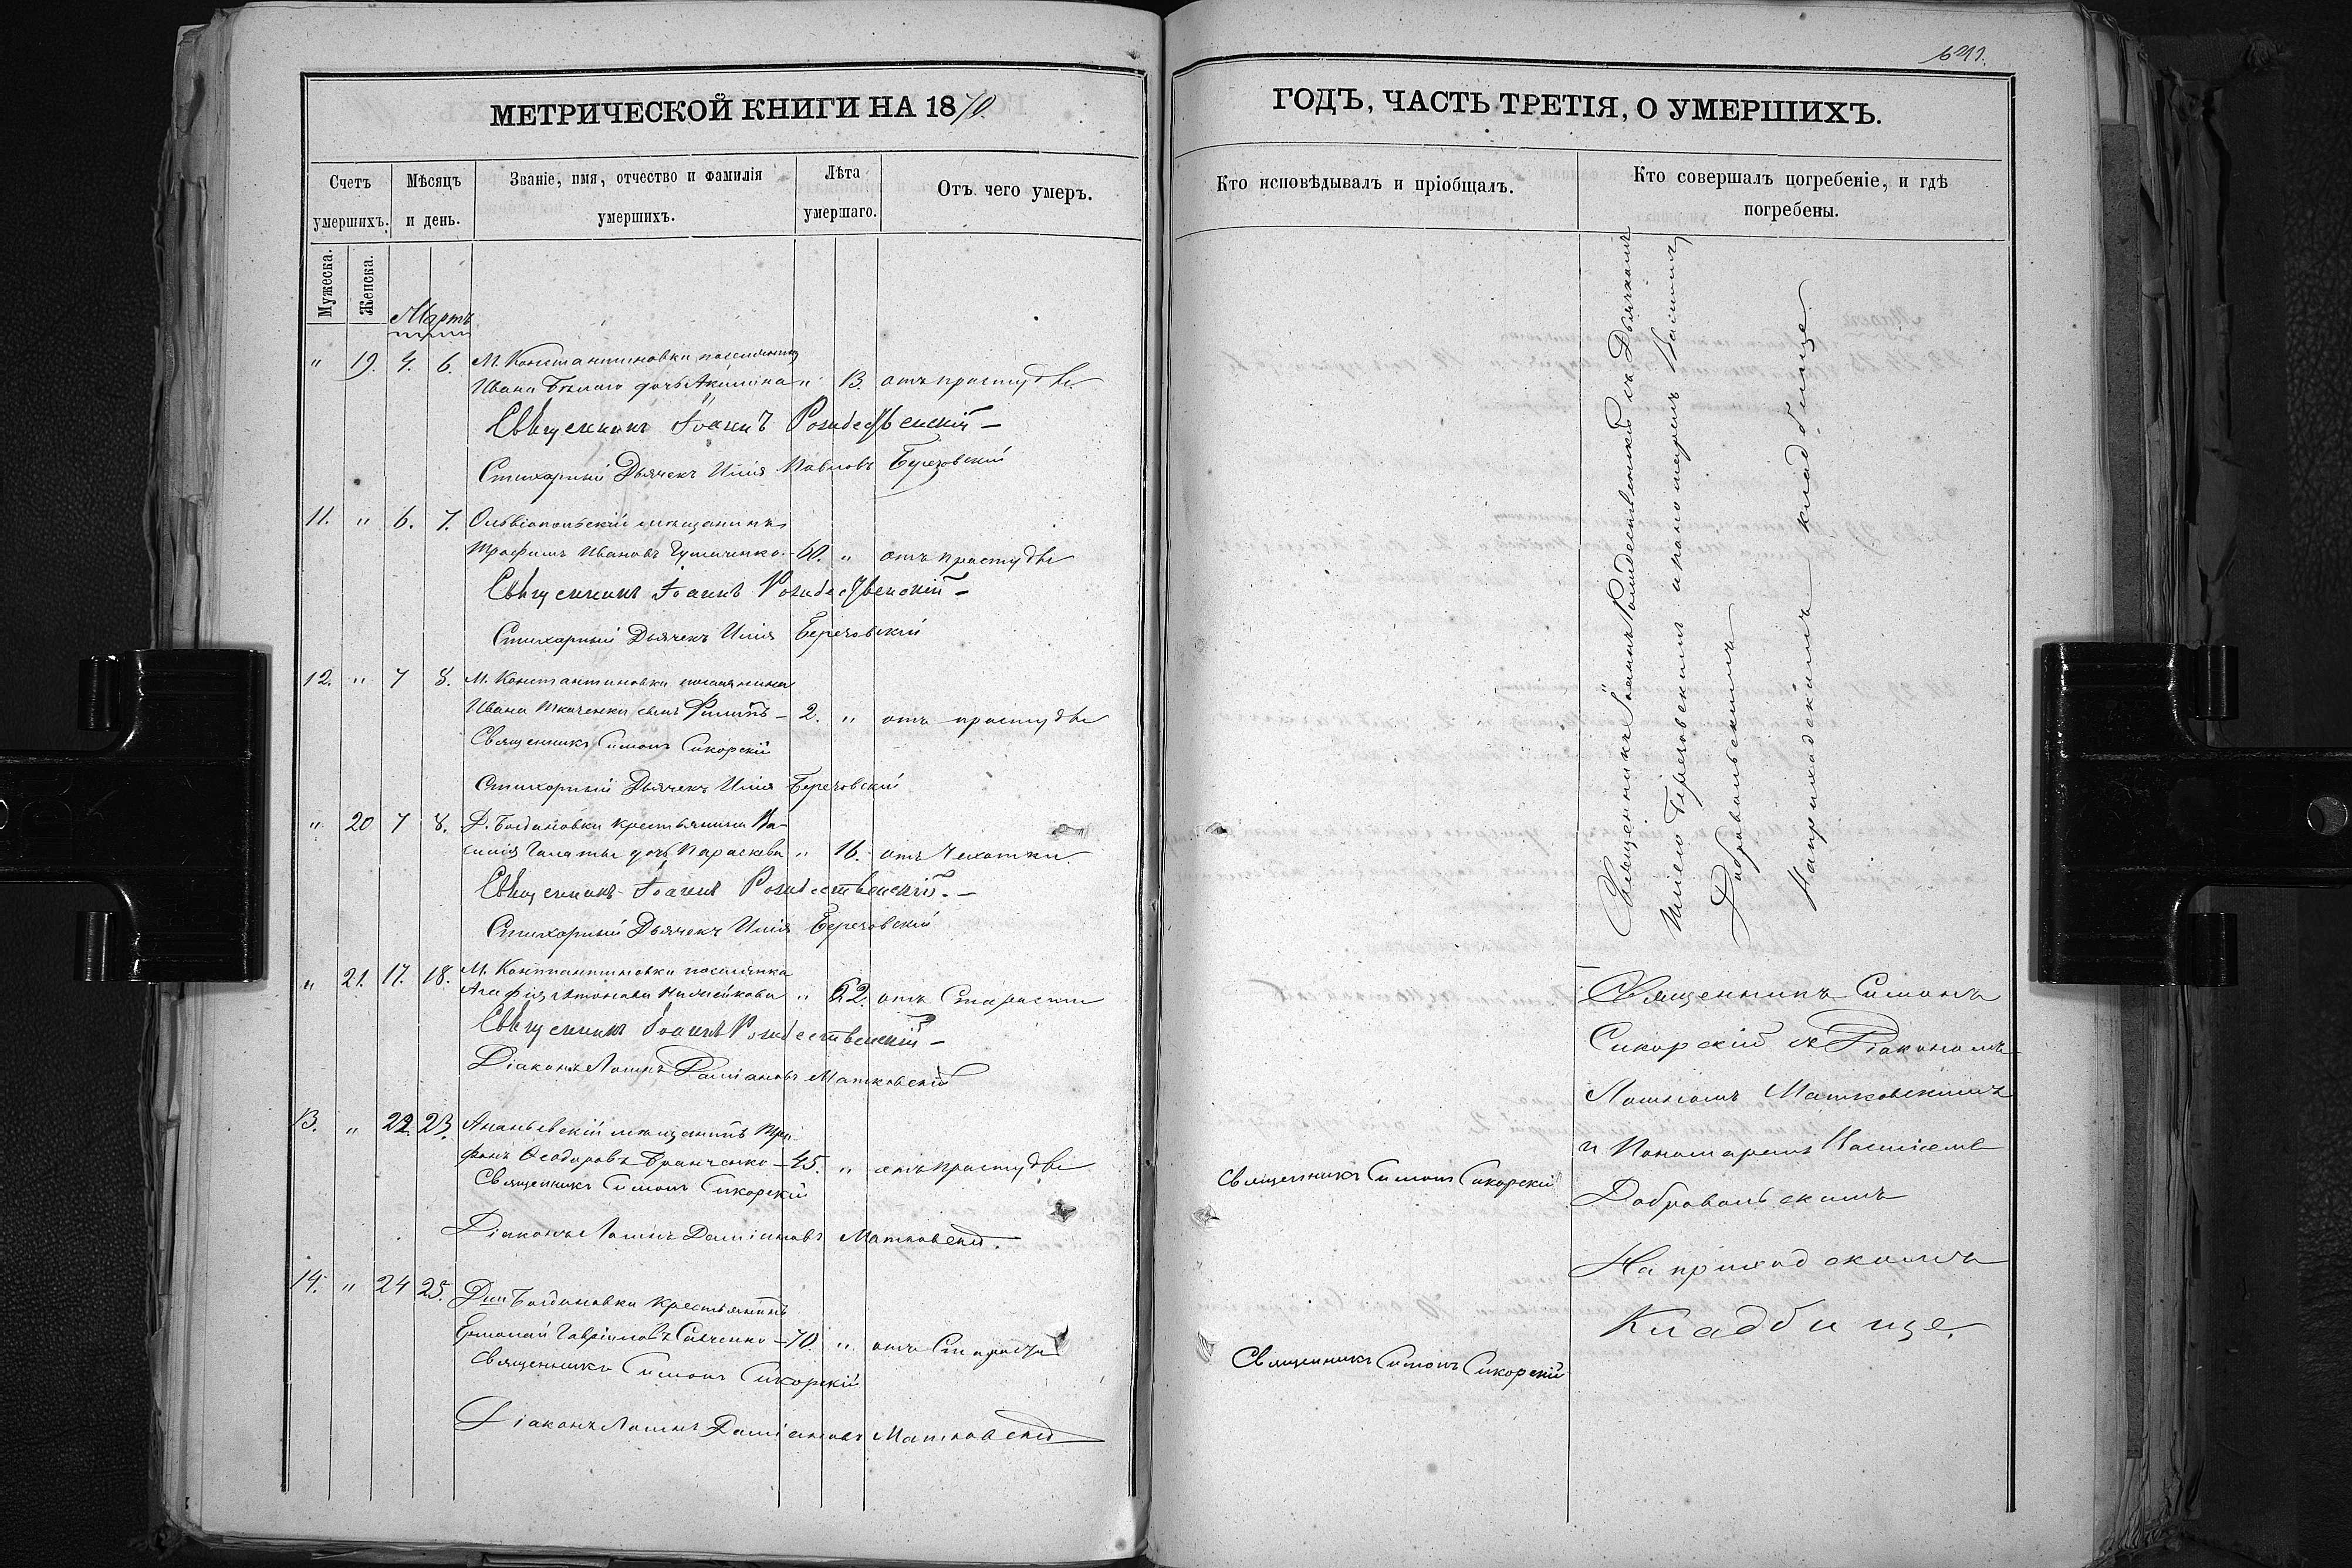 МЕТРИЧЕСКОЙ КНИГИ НА 1870.
Счетъ умершихъ.
Мѣсяцъ и день.
Званіе, имя, отчество и фамилія умершихъ.
Лѣта умершаго.
Отъ чего умеръ.
Мужеска.
Женска.
Мартъ
" 19. 4. 6. М. Константиновки поселянина
Ивана Бѣлаго дочь Акилина " 13. отъ простуды
Священникъ Іоаннъ Рождественскій
Стихарный Дьячекъ Илія Павловъ Березовскій
11. " 6. 7. Ольвіопольскій мѣщанинъ
Трофимъ Ивановъ 60. " отъ простуды
Священникъ Іоаннъ Рождественскій
Стихарный Дьячекъ Илія Березовскій
12. " 7 8. М. Константиновки поселянина
Ивана Ткаченки сынъ Филипъ 2. " отъ простуды
Священникъ Симонъ Сикорскій
Стихарный Дьячекъ Илія Березовскій
" 20 7 8. Д. Богдановки крестьянина Ва-
силія Галаты дочь Параскева " 16. отъ Чахотки.
Священникъ Іоаннъ Рождественскій.
Стихарный Дьячекъ Илія Березовскій
" 21. 17. 18. М. Константиновки поселянка
Агафія Антонова " 62. отъ Старости
Священникъ Іоаннъ Рождественскій
Діаконъ Логинъ Даміановъ Матковскій
13. " 22. 23. Ананьевскій мѣщанинъ Три-
фонъ Ѳеодоровъ 45. " отъ простуды
Священникъ Симонъ Сикорскій
Діаконъ Логинъ Даміановъ Матковскій.
14. " 24 25. Д Богдановки крестьянинъ
Ермолай Гавріиловъ Савченко 70. " отъ Старости
Священникъ Симонъ Сикорскій
Діаконъ Логинъ Даміановъ Матковскій
ГОДЪ, ЧАСТЬ ТРЕТІЯ, О УМЕРШИХЪ.
Кто исповѣдывалъ и пріобщалъ.
Кто совершалъ погребеніе, и гдѣ погребены.
Священникъ Іоаннъ Рождественскій съ Дьячкомъ
Иліею Березовскимъ и пономаремъ Василіемъ
Добровольскимъ
На приходскомъ кладбище.
Священникъ Симонъ
Сикорскій съ Діакономъ
Логиномъ Матковскимъ
и Пономаремъ Василіемъ
Добровольскимъ
На приходскомъ
Кладбище.
Священникъ Симонъ Сикорскій
Священникъ Симонъ Сикорскій